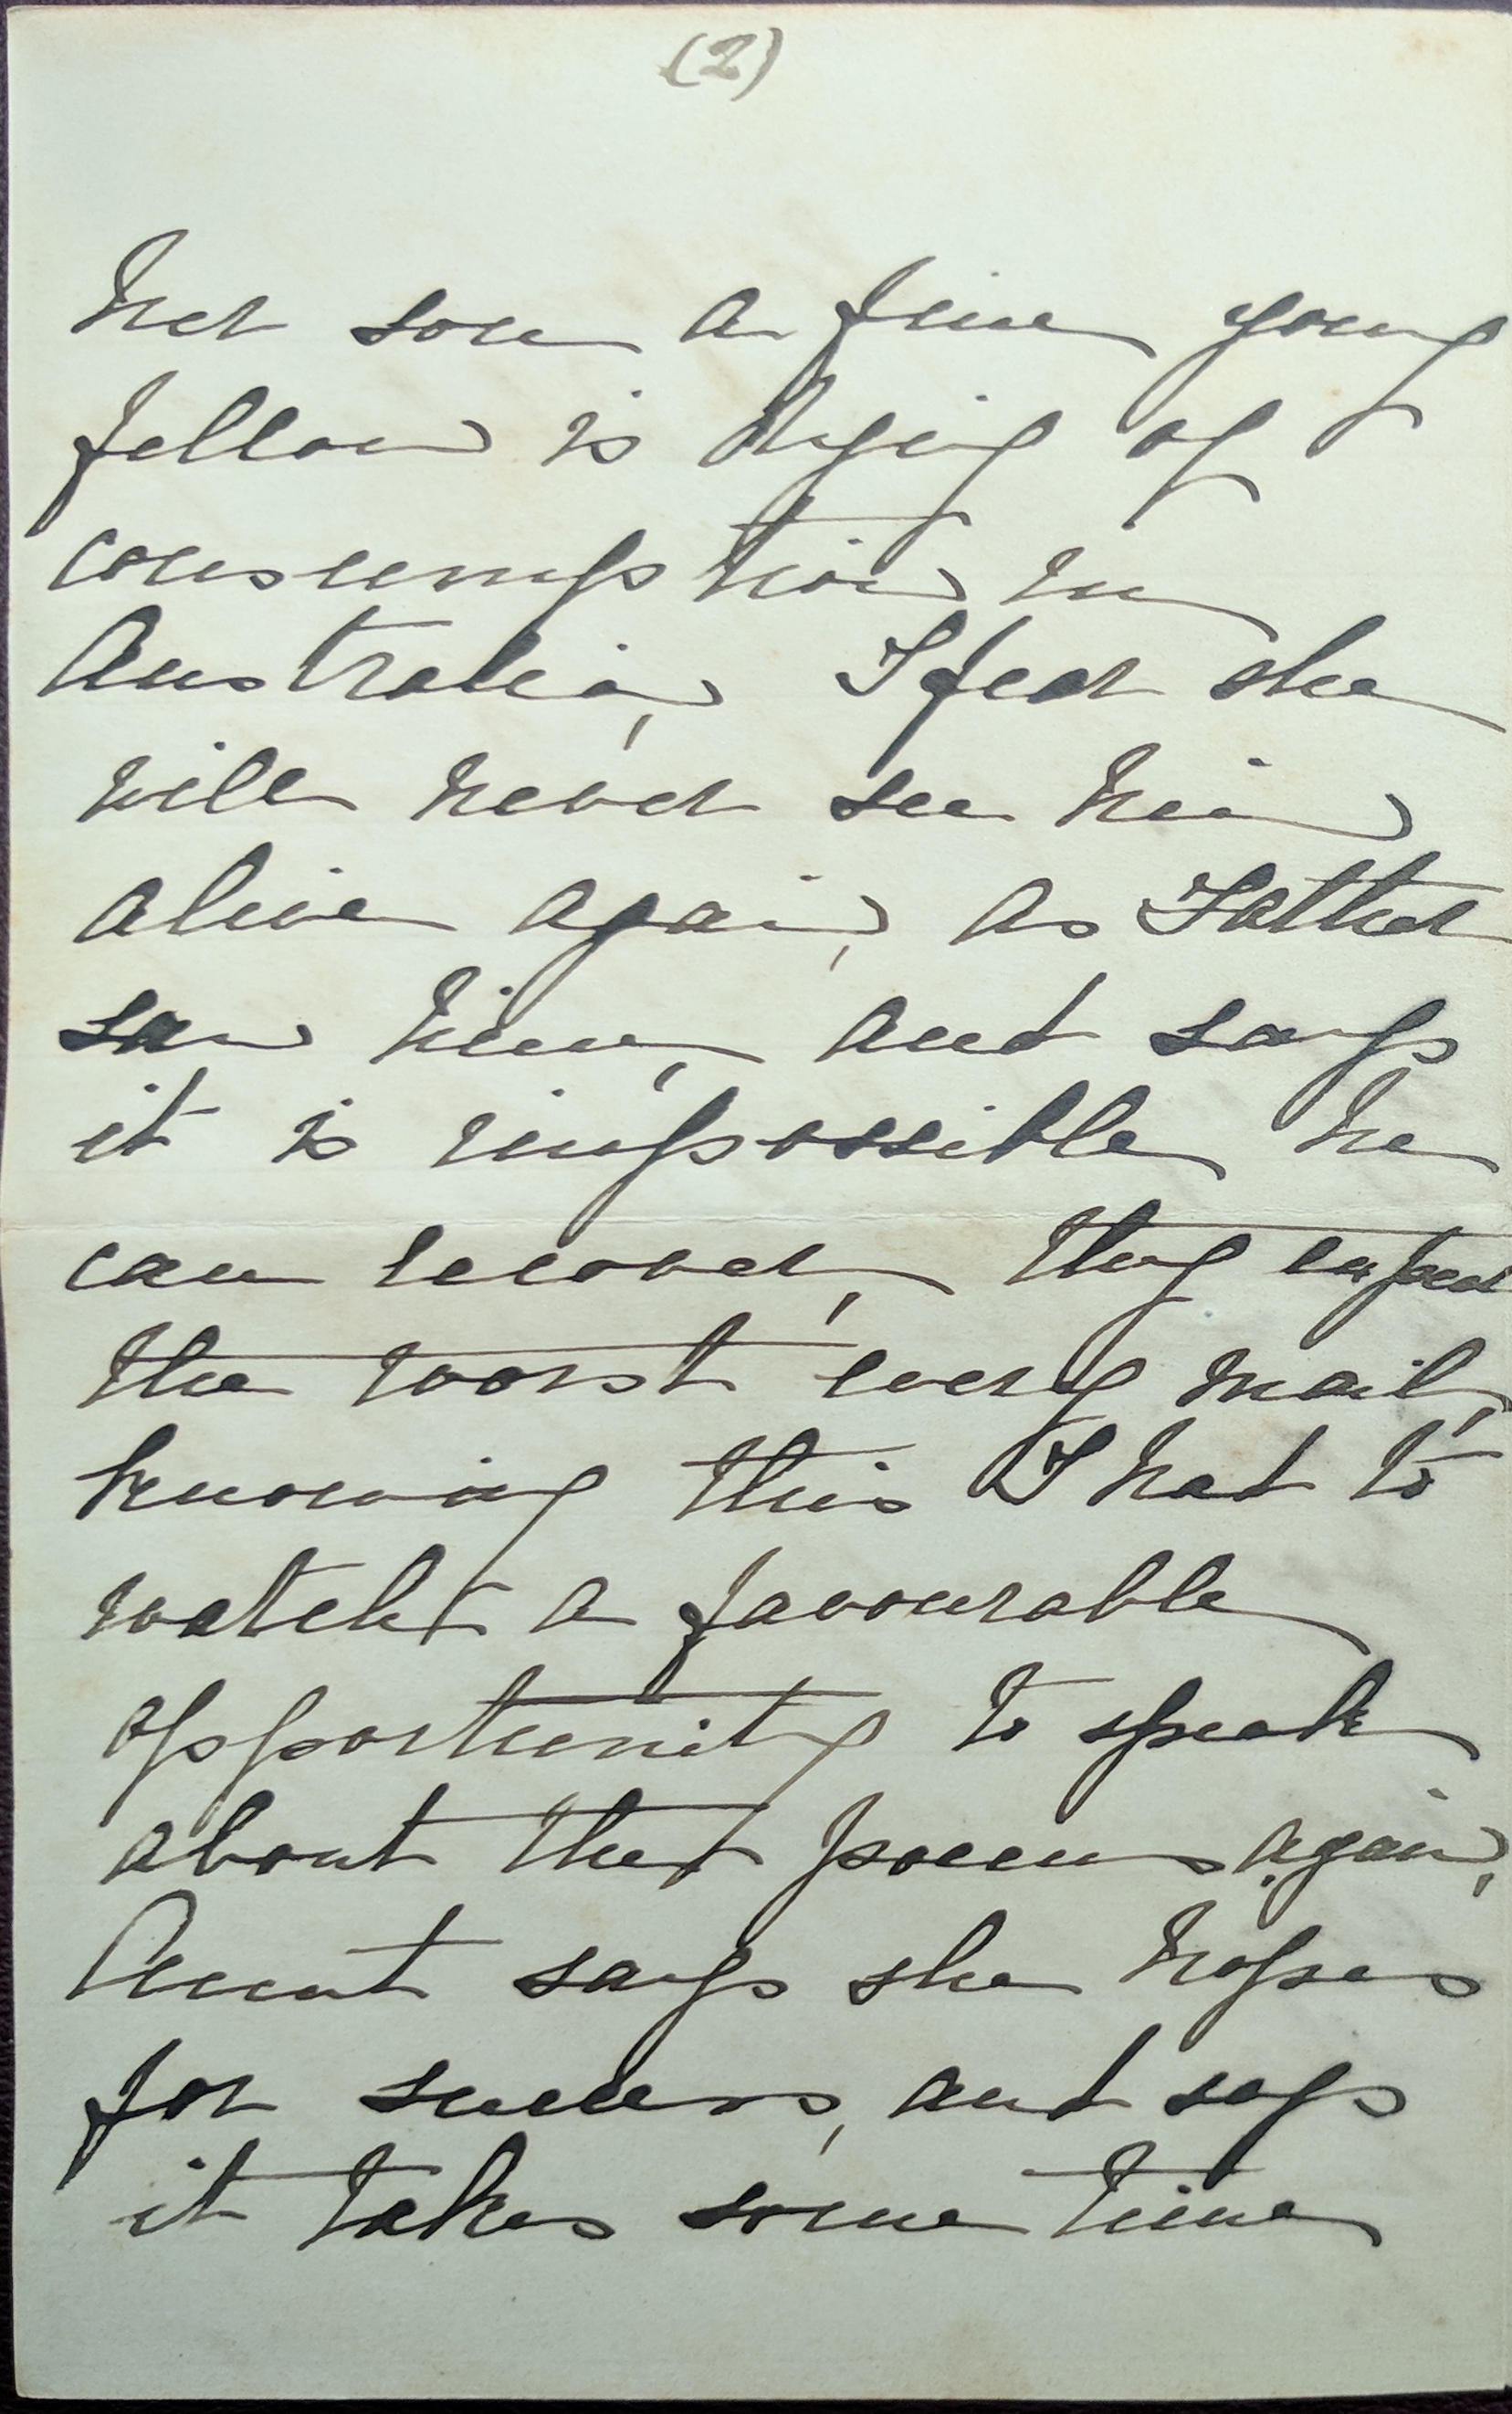 (2)
her son a fine young
fellow is dying of
consumption in
Australia, I fear she
will never see him
alive again, as Father
saw him, and says
it is impossible he
can recover, they expect
the worst every mail,
knowing this I had to
watch a favourable
opportunity to speak
about the poems again,
Aunt says she hopes
for success, and says
it takes some time